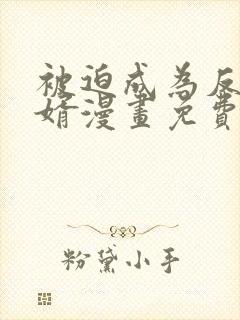 被迫成為反
婿漫畫免費
粉黛小手